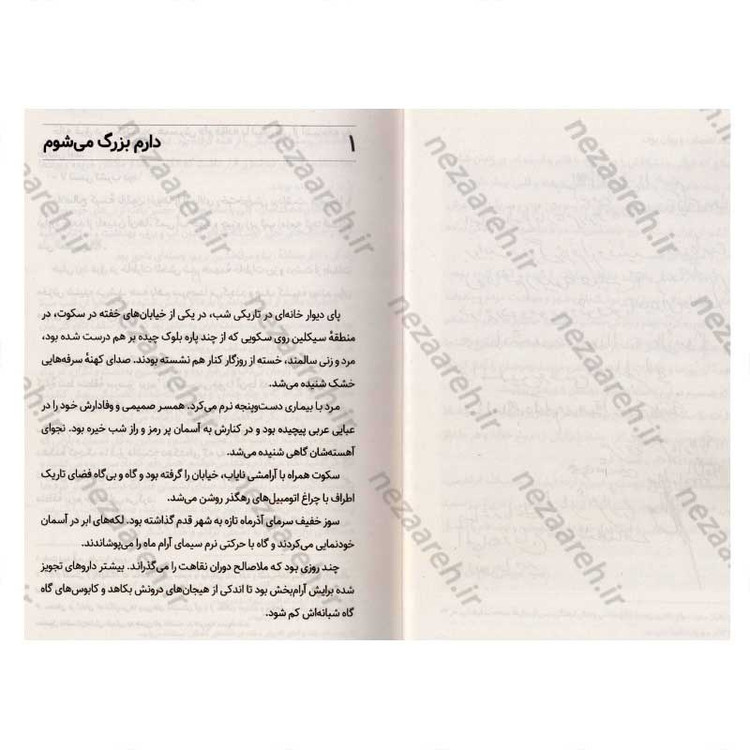 ۱ دارم بزرگ می‌شوم
پای دیوار خانه‌ای در تاریکی شب، در یکی از خیابان‌های خفته در سکوت، در
منطقهٔ سیکلین روی سکویی که از چند پاره بلوک چیده بر هم درست شده بود،
مرد و زنی سالمند، خسته از روزگار کنار هم نشسته بودند. صدای کهنهٔ سرفه‌هایی
خشک شنیده می‌شد.
مرد با بیماری دست‌وپنجه نرم می‌کرد. همسر صمیمی و وفادارش خود را در
عبایی عربی پیچیده بود و در کنارش به آسمان پر رمز و راز شب خیره بود. نجوای
آهسته‌شان گاهی شنیده می‌شد.
سکوت همراه با آرامشی نایاب، خیابان را گرفته بود و گاه و بی‌گاه فضای تاریک
اطراف با چراغ اتومبیل‌های رهگذر روشن می‌شد.
سوز خفیف سرمای آذرماه تازه به شهر قدم گذاشته بود. لکه‌های ابر در آسمان
خودنمایی می‌کردند و گاه با حرکتی نرم سیمای آرام ماه را می‌پوشاندند.
چند روزی بود که ملاصالح دوران نقاهت را می‌گذراند. بیشتر داروهای تجویز
شده برایش آرام‌بخش بود تا اندکی از هیجان‌های درونش بکاهد و کابوس‌های گاه
گاه شبانه‌اش کم شود.
nezaareh.ir
nezaareh.ir
nezaareh.ir
nezaareh.ir
nezaareh.ir
nezaareh.ir
nezaareh.ir
nezaareh.ir
nezaareh.ir
nezaareh.ir